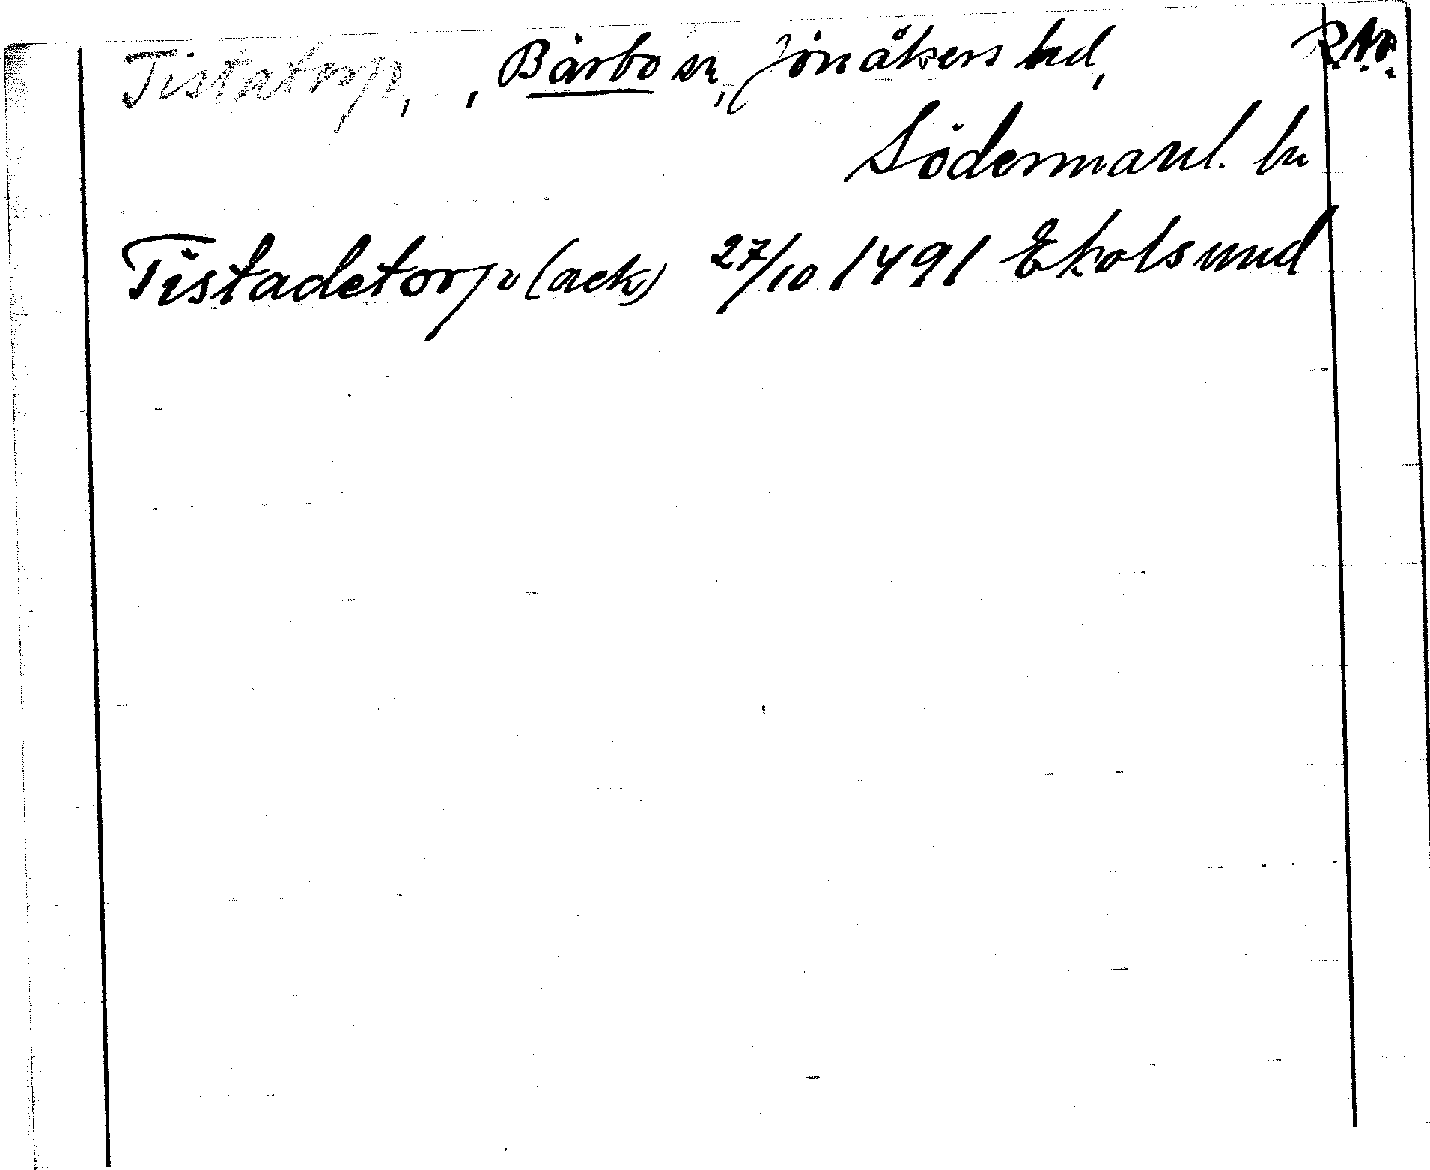 Tistatorp, , Bärbo sn, Jönåkers hd, R.Nö.
Södermanl. ln
Tistadetorp (ack) 27/10 1491 Ekolsund